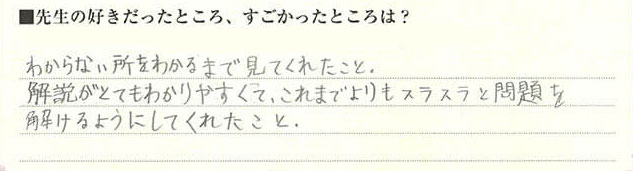 ■先生の好きだったところ、すごかったところは？
わからない所をわかるまで見てくれたこと.
解説がとてもわかりやすくて、これまでよりもスラスラと問題を
解けるようにしてくれたこと.